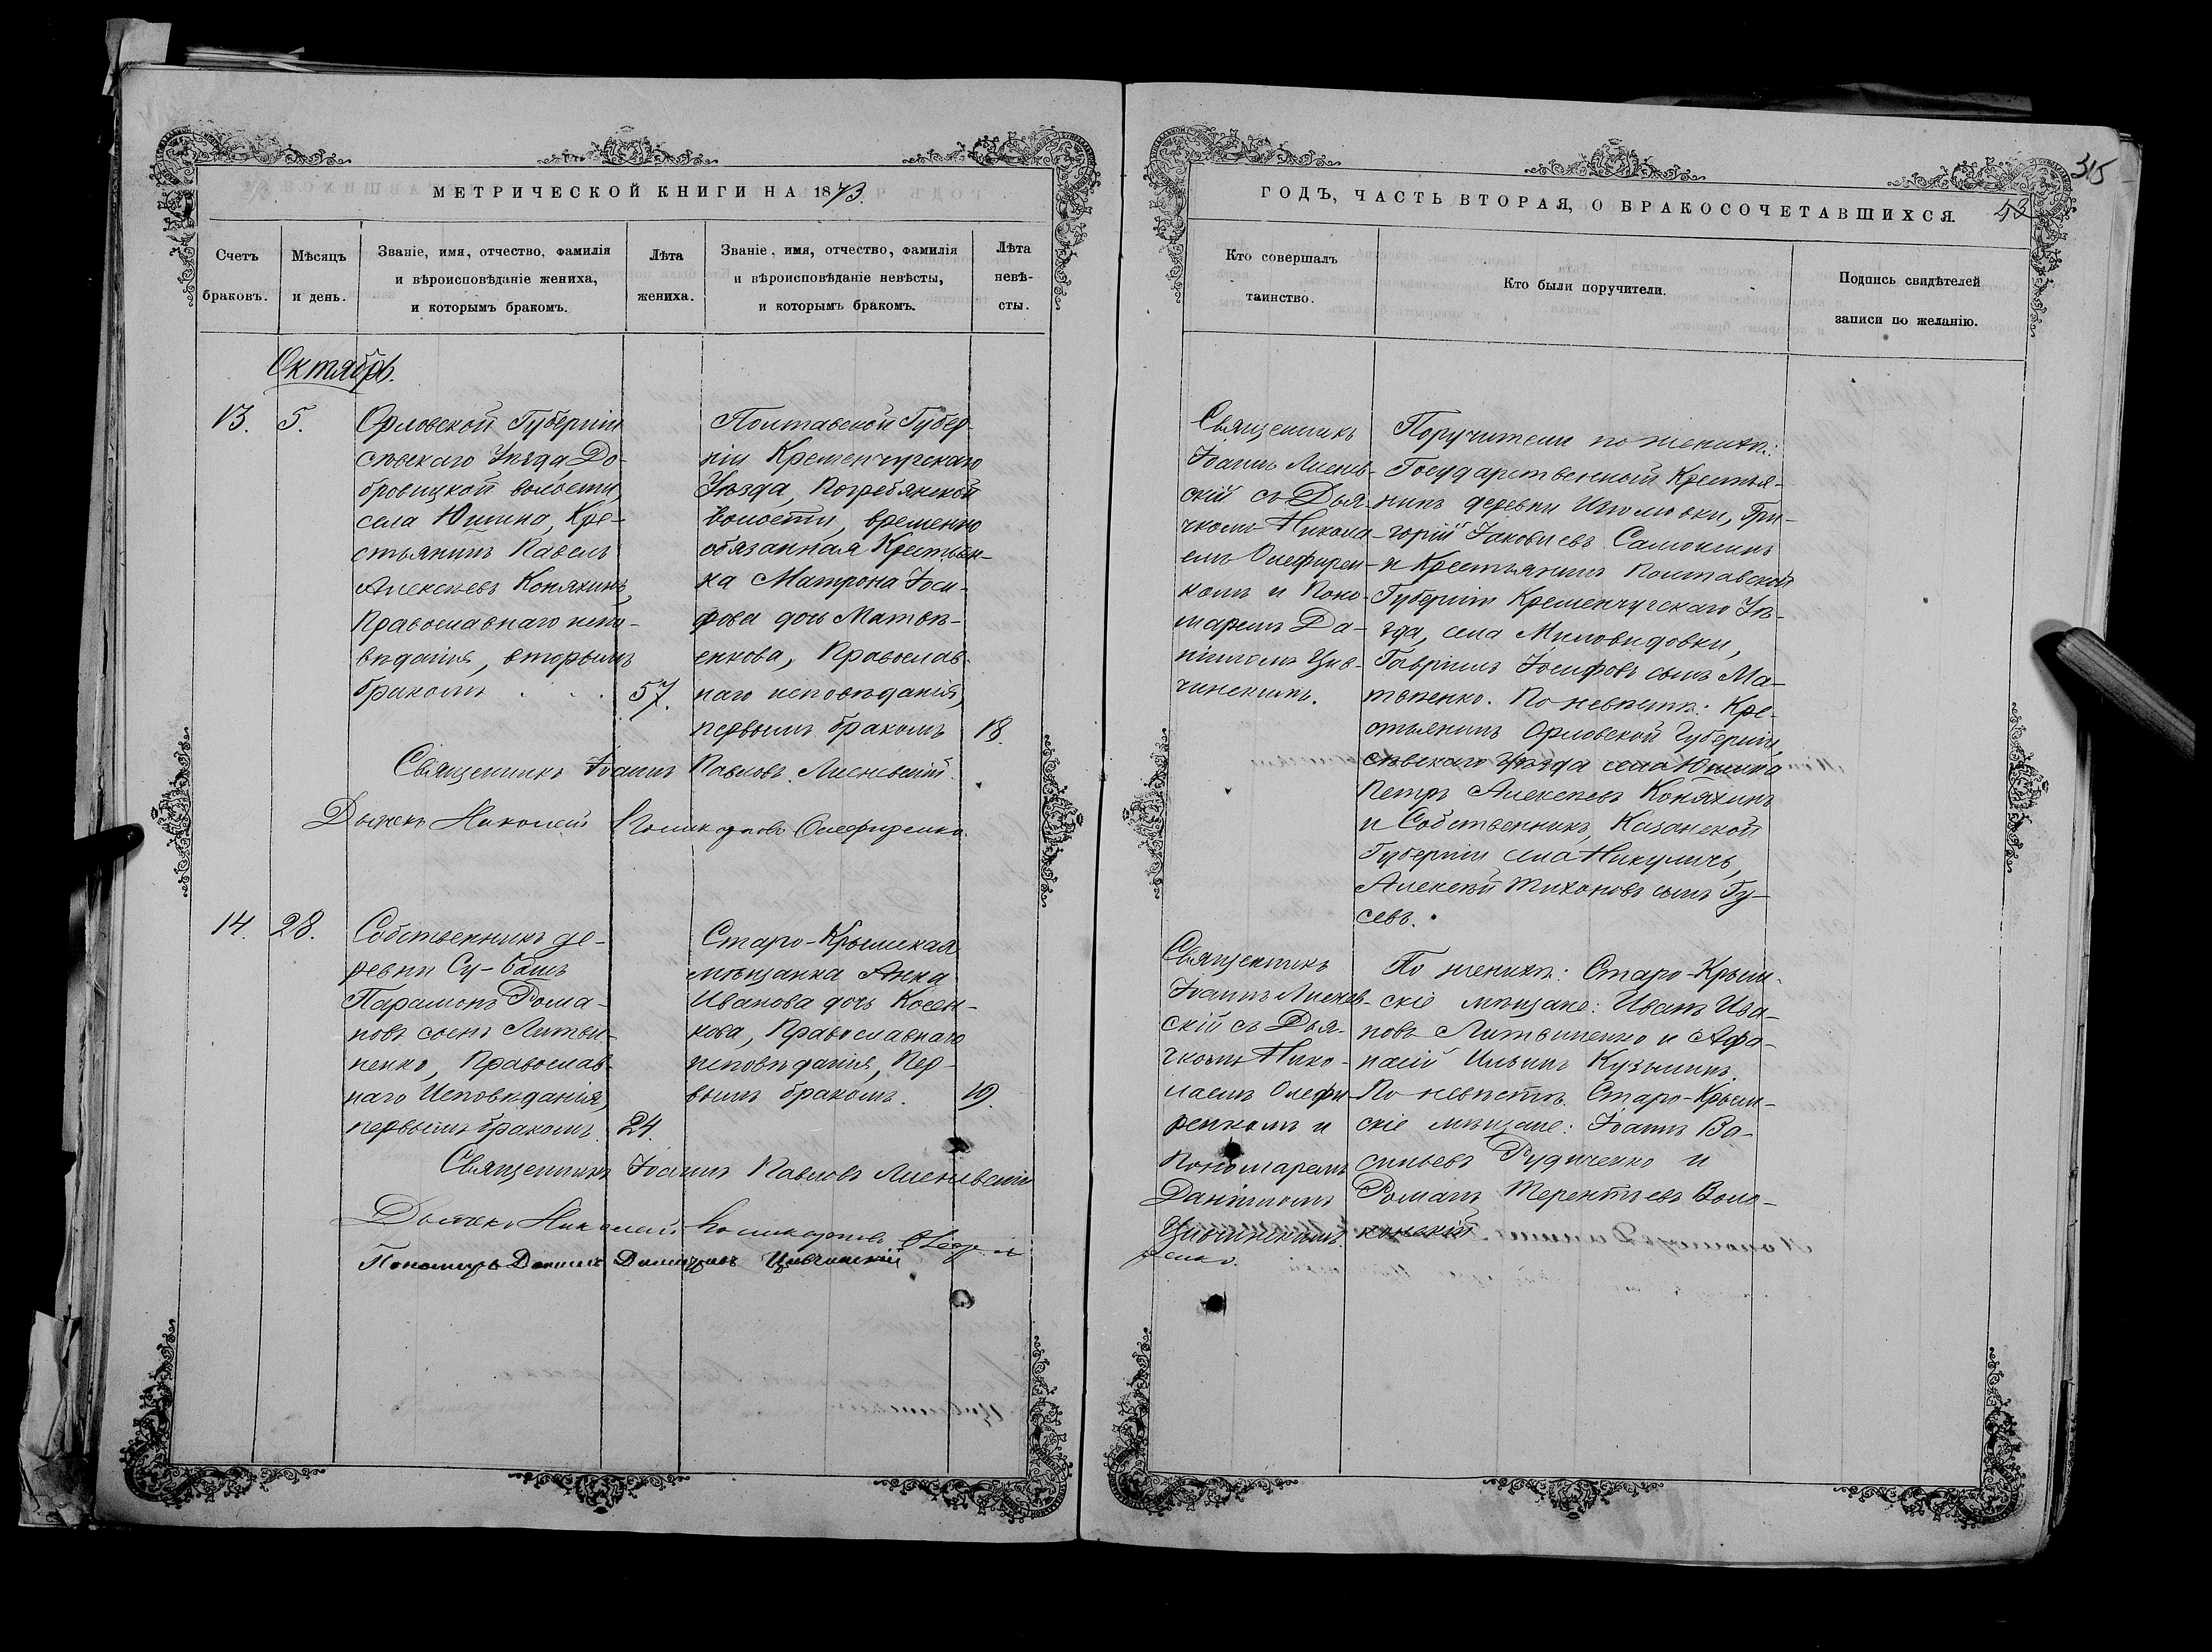 МЕТРИЧЕСКОЙ КНИГИ НА 1873.
Счетъ браковъ.
Мѣсяцъ и день.
Званіе, имя, отчество, фамилія
и вѣроисповѣданіе жениха,
и которымъ бракомъ.
Лѣта жениха.
Званіе, имя, отчество, фамилія
и вѣроисповѣданіе невѣсты,
и которымъ бракомъ.
Лѣта невѣ-
сты.
Октябрь.
13. 5.
Орловской Губерніи
сѣвскаго Уѣзда, До-
бровицкой волости,
села Юшина, Кре-
стьянинъ Павелъ
Алексѣевъ Коняхинъ,
Православнаго испо-
вѣданія, вторымъ
бракомъ . . . 57.
Полтавской Губер-
ніи Кременчугскаго
Уѣзда, Погребянской
волости, временно
обязанная Крестьян-
ка Матрона Іоси-
фова дочь Матвѣ-
енкова, Православ-
наго исповѣданія,
первымъ бракомъ 18.
Священникъ Іоаннъ Павловъ Лисневскій.
Дьячекъ Николай Поликарповъ Олефиренко.
14. 28.
Собственникъ де-
ревни Су-башъ
Парамонъ Рома-
новъ сынъ Литви-
ненко, Православ-
наго Исповѣданія,
первымъ бракомъ. 24.
Старо-Крымская
мѣщанка Анна
Иванова дочь Косен-
кова, Православнаго
исповѣданія, Пер-
вымъ бракомъ. 19.
Священникъ Іоаннъ Павловъ Лисневскій
Дьячекъ Николай Поликарповъ
Пономарь Даніилъ Димитровъ Цивчинскій
315
ГОДЪ, ЧАСТЬ ВТОРАЯ, О БРАКОСОЧЕТАВШИХСЯ. 53
Кто совершалъ
таинство.
Кто были поручители.
Подпись свидѣтелей
записи по желанію.
Священникъ
Іоаннъ Лиснев-
скій съ Дья-
чкомъ Никола-
емъ Олефирен-
комъ и Поно-
маремъ Да-
ніиломъ Цив-
чинскимъ.
Поручители по женихѣ:
Государственной Крестья-
нинъ деревни Изюмовки, Гри-
горій Іаковлевъ Самохинъ
и Крестьянинъ Полтавской
Губерніи Кременчугскаго Уѣ-
зда, села Миловидовки,
Гавріилъ Іосифовъ сынъ Ма-
твѣенко. По невѣстѣ: Кре-
стьянинъ Орловской Губерніи,
сѣвскаго Уѣзда села Юшина
Петръ Алексѣевъ Коняхинъ
и Собственникъ, Казанской
Губерніи села Никуличъ,
Алексѣй Тихоновъ сынъ Гу-
севъ.
Священникъ
Іоаннъ Лиснев-
скій съ Дья-
чкомъ Нико-
лаемъ Олефи-
ренкомъ и
Пономаремъ
Даніиломъ
Цивчинскимъ.
По женихѣ: Старо-Крым-
скіе мѣщане: Иванъ Ива-
новъ Литвиненко и Афа-
насій Ильинъ Кузьминъ.
По невѣстѣ. Старо-Крым-
скіе мѣщане: Іоаннъ Ва-
сильевъ Рудиченко и
Романъ Терентьевъ Воло-
конскій